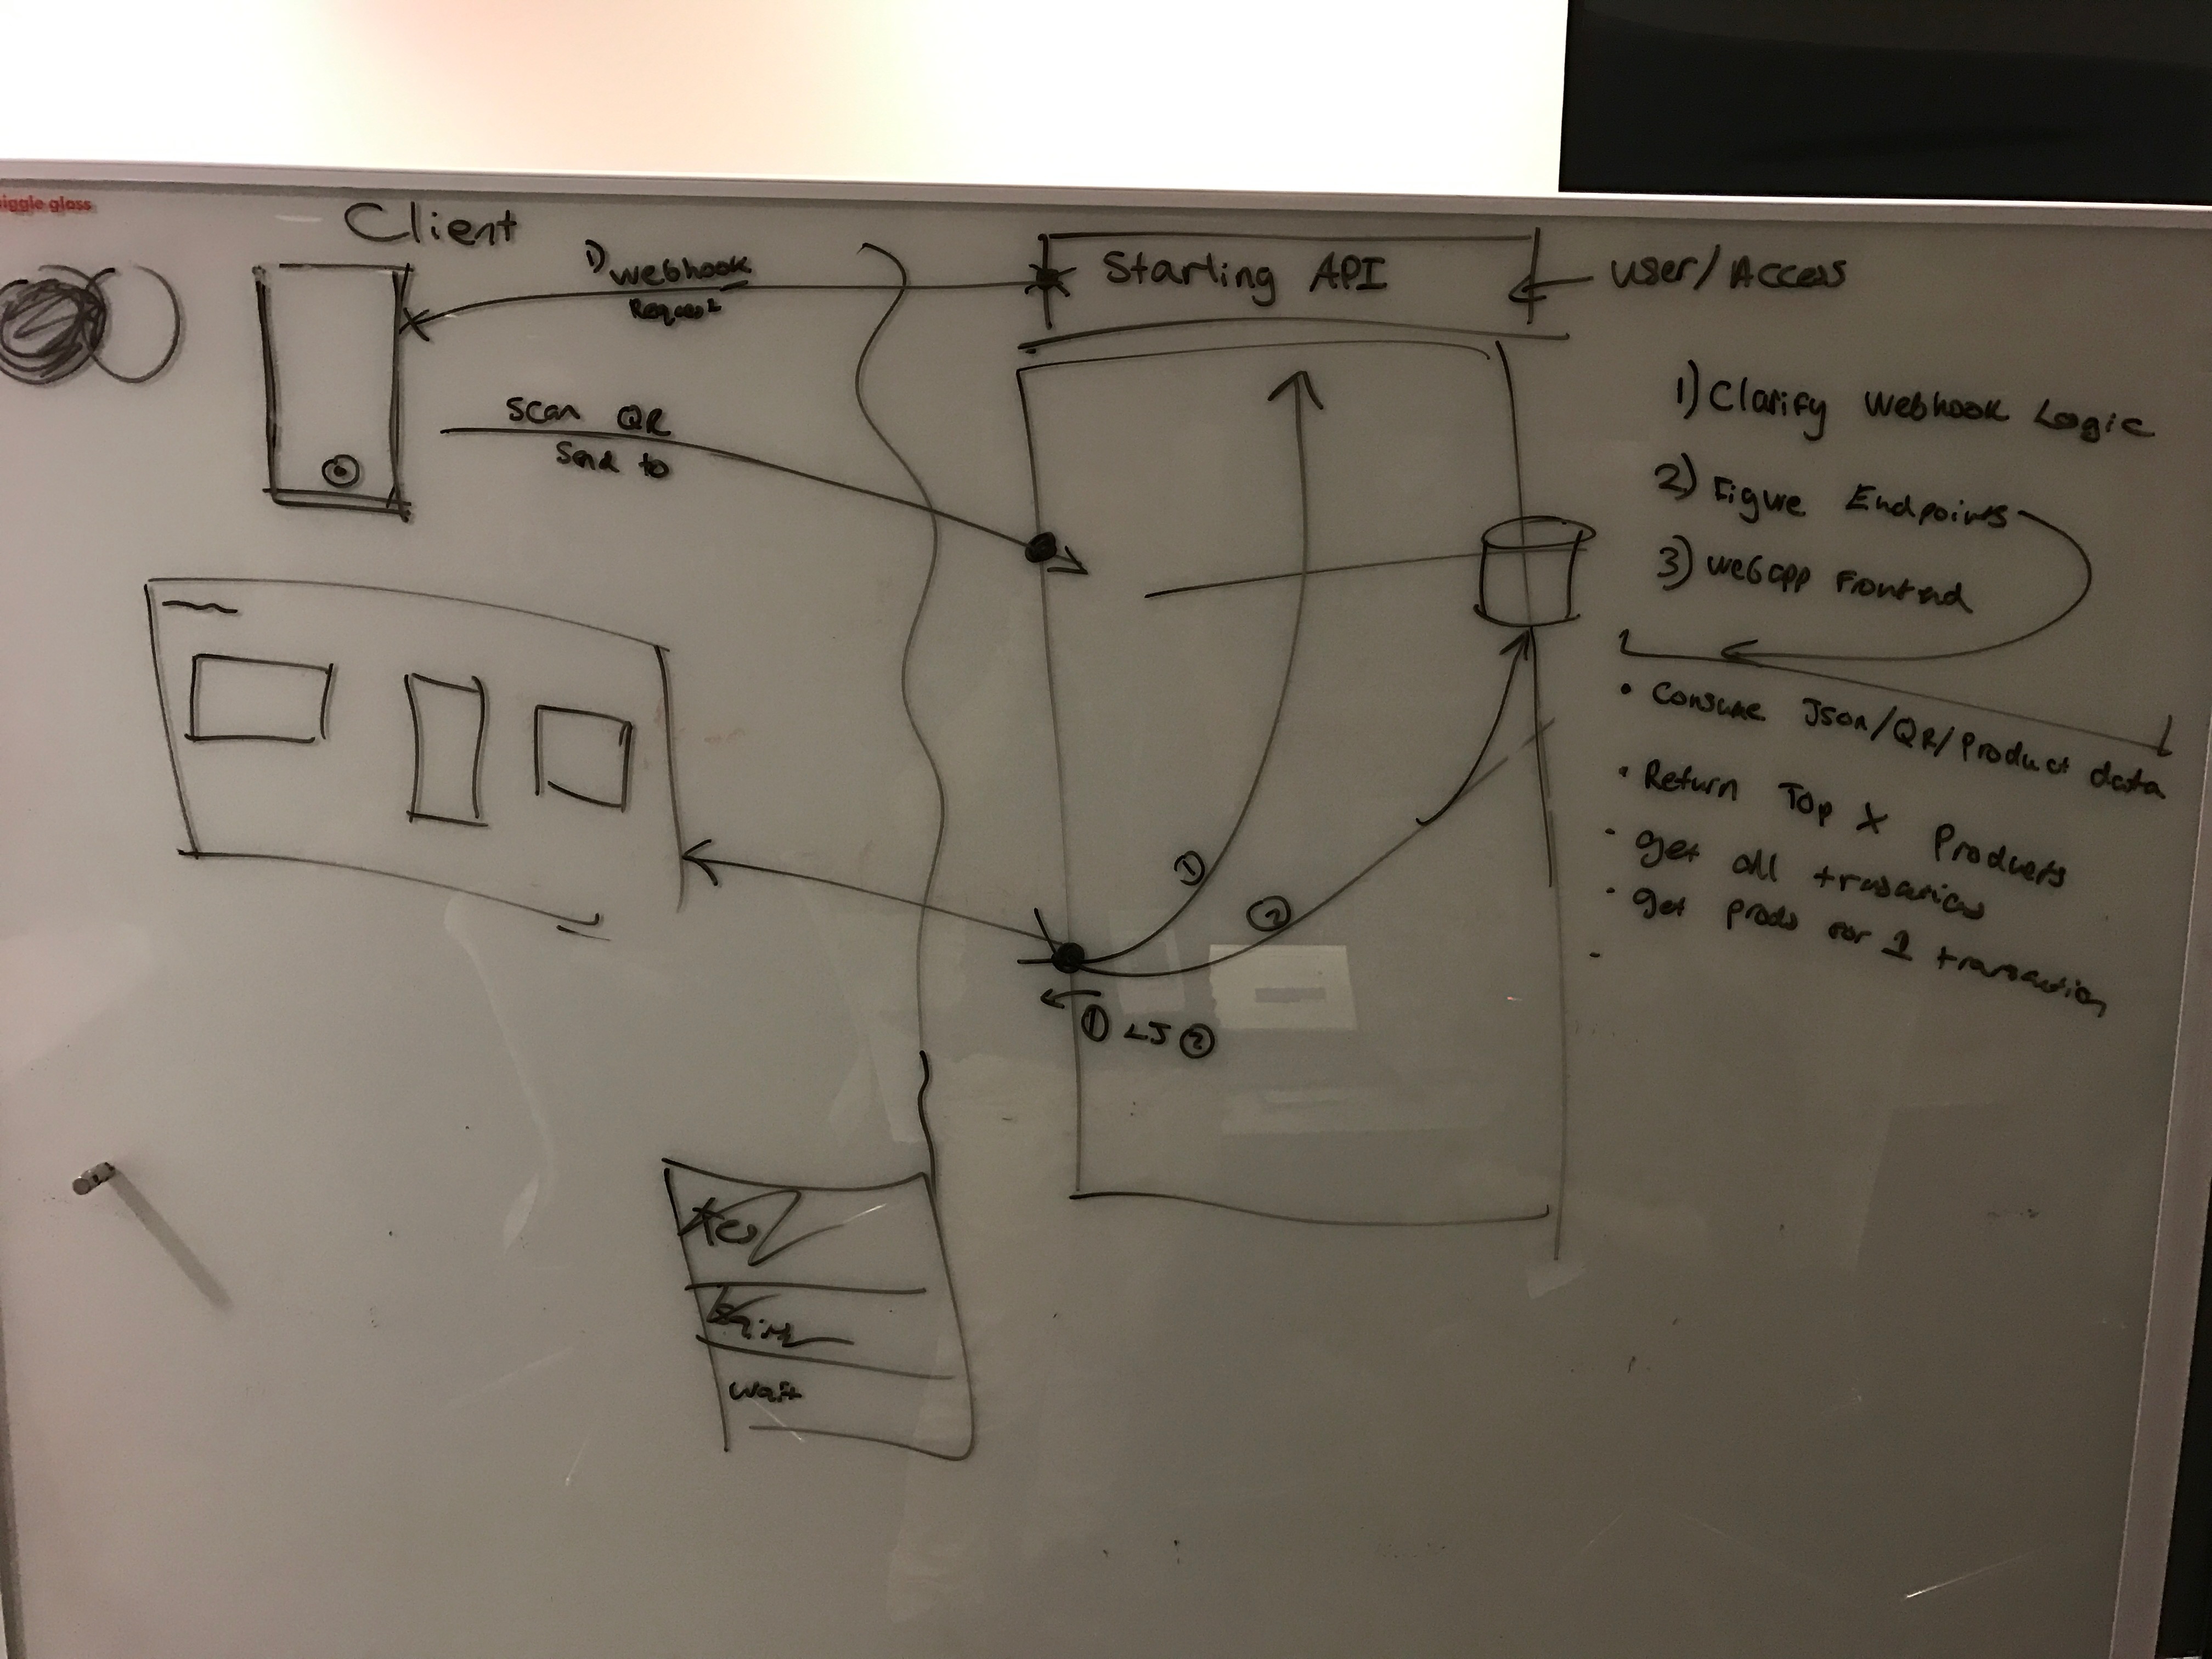 iggle glass
Client
1) Webhook
Request
Starling API
User/Access
Scan QR
Send to
1) Clarify Webhook Logic
2) Figure Endpoints
3) Webapp Frontend
• Consume Json/QR/Product data
• Return Top X Products
• get all
• get prods for 1 transaction
-
①
②
① LJ ②
wait